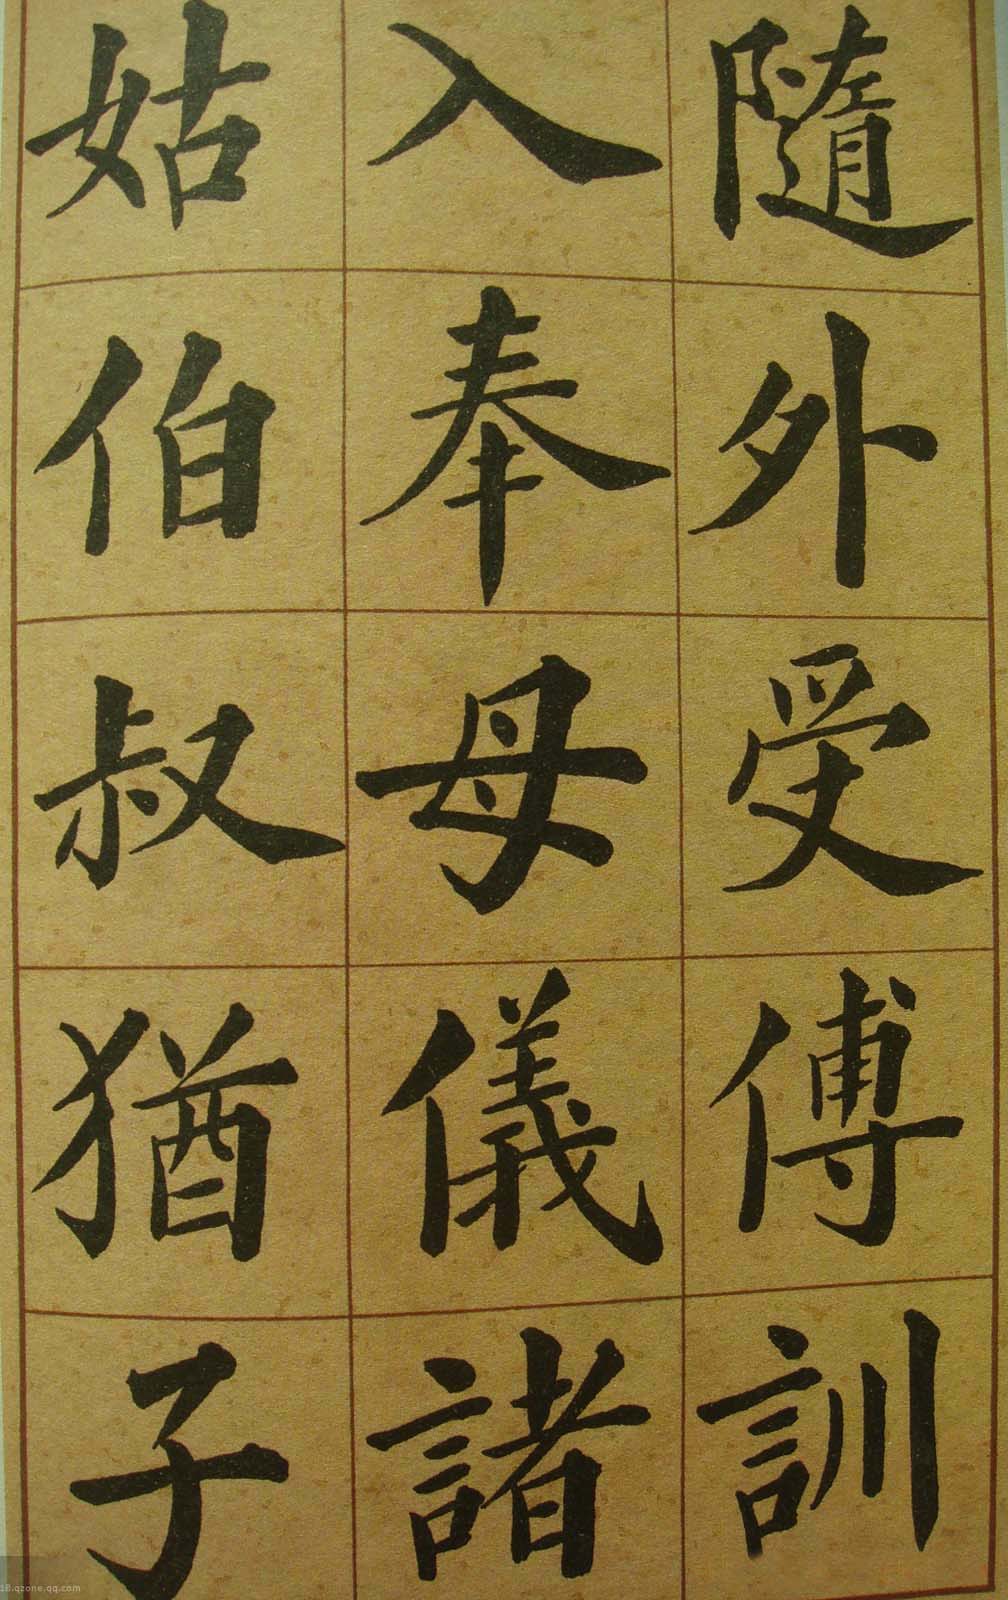 隨外受傅訓
入奉母儀諸
姑伯叔猶子
18.qzone.qq.com